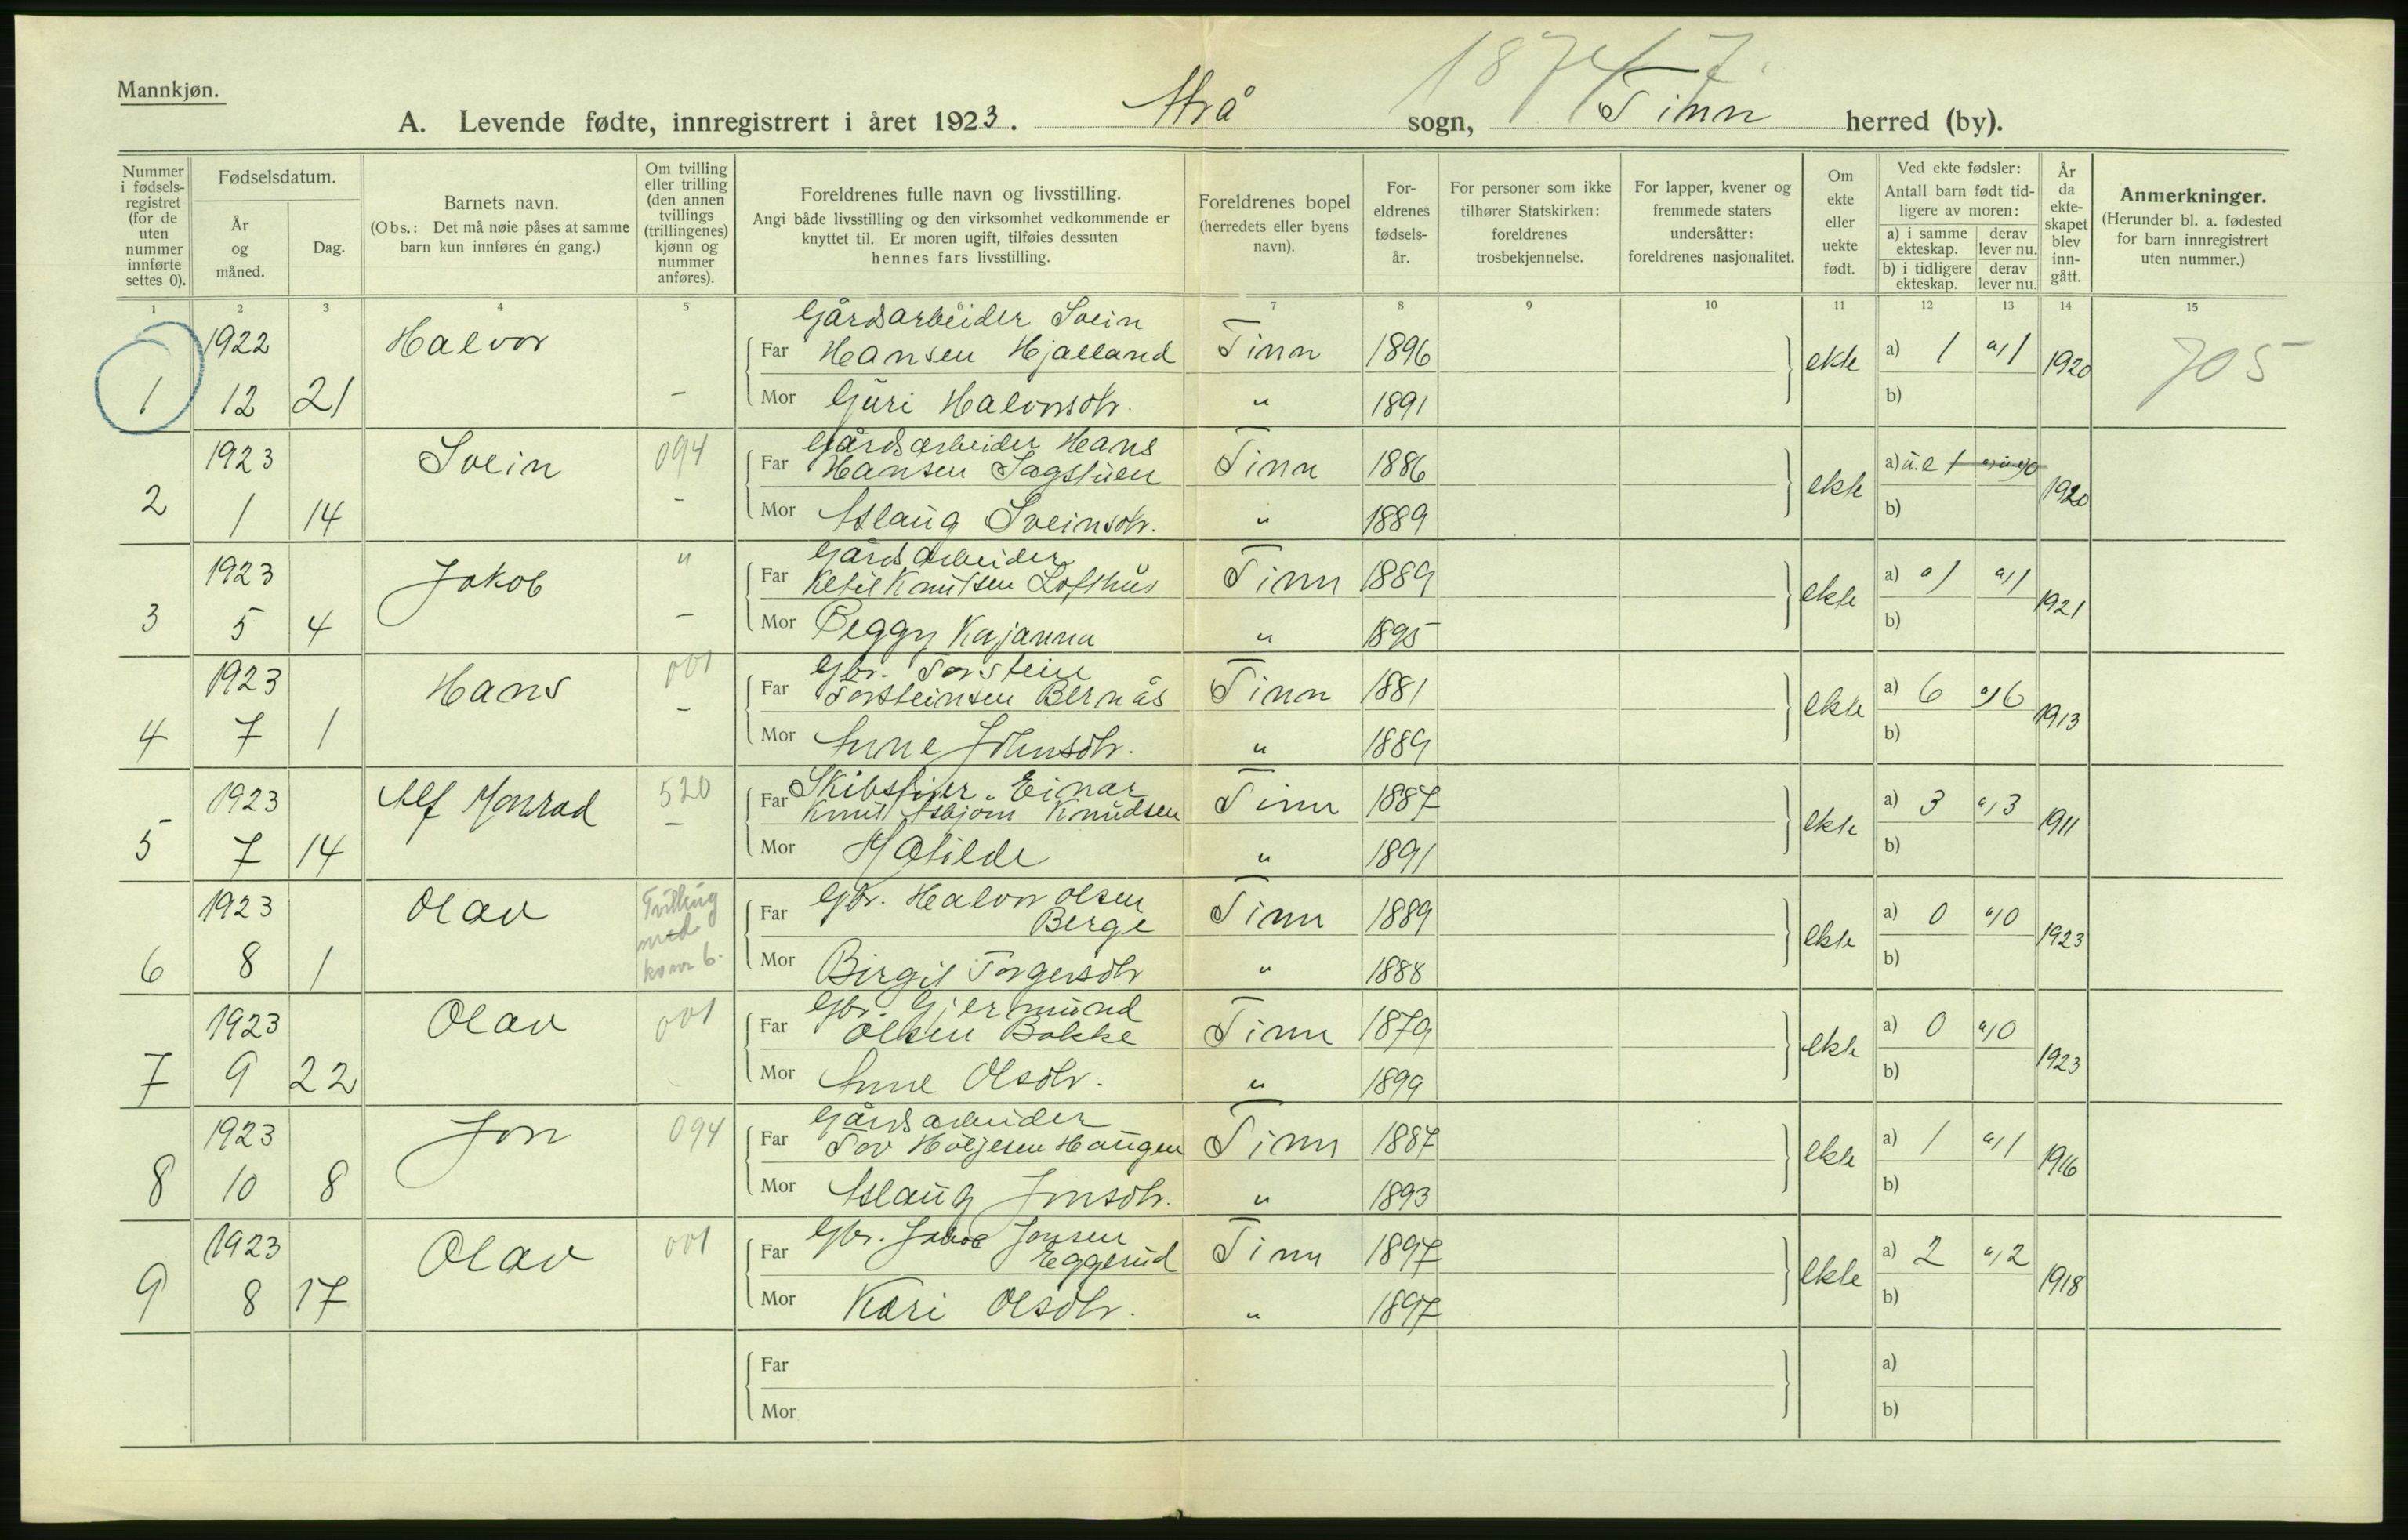 1874 7.
Mannkjøn.
A. Levende fødte, innregistrert i året 1923. Atrå sogn, Tinn herred (by).
Nummer i fødsels-registret (for de uten nummer innførte settes 0).
Fødselsdatum.
År og måned.
Dag.
Barnets navn.
(Obs.: Det må nøie påses at samme barn kun innføres én gang.)
Om tvilling eller trilling (den annen tvillings (trillingenes) kjønn og nummer anføres).
Foreldrenes fulle navn og livsstilling.
Angi både livsstilling og den virksomhet vedkommende er knyttet til. Er moren ugift, tilføies dessuten hennes fars livsstilling.
Foreldrenes bopel (herredets eller byens navn).
For-eldrenes fødsels-år.
For personer som ikke tilhører Statskirken: foreldrenes trosbekjennelse.
For lapper, kvener og fremmede staters undersåtter: foreldrenes nasjonalitet.
Om ekte eller uekte født.
Ved ekte fødsler:
Antall barn født tid-ligere av moren:
a) i samme ekteskap. derav lever nu.
b) i tidligere ekteskap. derav lever nu.
År da ekte-skapet blev inn-gått.
Anmerkninger.
(Herunder bl. a. fødested for barn innregistrert uten nummer.)
1 2 3 4 5 6 7 8 9 10 11 12 13 14 15
Gårdsarbeider Svein
1922 Halvor Far Hansen Hjalland Tinn 1896 ekte a) 1 a) 1 1920 705
1 12 21 – Mor Guri Halvorsdtr. " 1891 b)
Gårdsarbeider Hans
1923 Svein 094 Far Hansen Sagstuen Tinn 1886 ekte a) u.e 1 1920
2 1 14 – Mor Aslaug Sveinsdtr. " 1889 b)
Gårdsarbeider
1923 Jakob " Far Ketil Knutsen Lofthus Tinn 1889 ekte a) a) 1 a) 1 1921
3 5 4 – Mor Peggy Kajanna " 1895 b)
Gbr. Torstein
1923 Hans 001 Far Torsteinsen Bernås Tinn 1881 ekte a) 6 a) 6 1913
4 7 1 – Mor Anne Johnsdtr. " 1889 b)
Einar
1923 Alf Monrad 520 Far Knut Asbjørn Knudsen Tinn 1887 ekte a) 3 a) 3 1911
5 7 14 – Mor Matilde " 1891 b)
1923 Olav Tvilling med kv nr 6. Far Gbr. Halvor Olsen Berge Tinn 1889 ekte a) 0 a) 0 1923
6 8 1 Mor Birgit Torgersdtr " 1888 b)
Gbr. Gjermund
1923 Olav 001 Far Olsen Bakke Tinn 1879 ekte a) 0 a) 0 1923
7 9 22 Mor Anne Olsdtr. " 1899 b)
Gårdsarbeider
1923 Jon 094 Far Tov Høljesen Haugen Tinn 1887 ekte a) 1 a) 1 1916
8 10 8 Mor Aslaug Jonsdtr. " 1893 b)
1923 Olav 001 Far Gbr. Jakob Jonsen Eggerud Tinn 1897 ekte a) 2 a) 2 1918
9 8 17 Mor Kari Olsdtr. " 1897 b)
Far a)
Mor b)